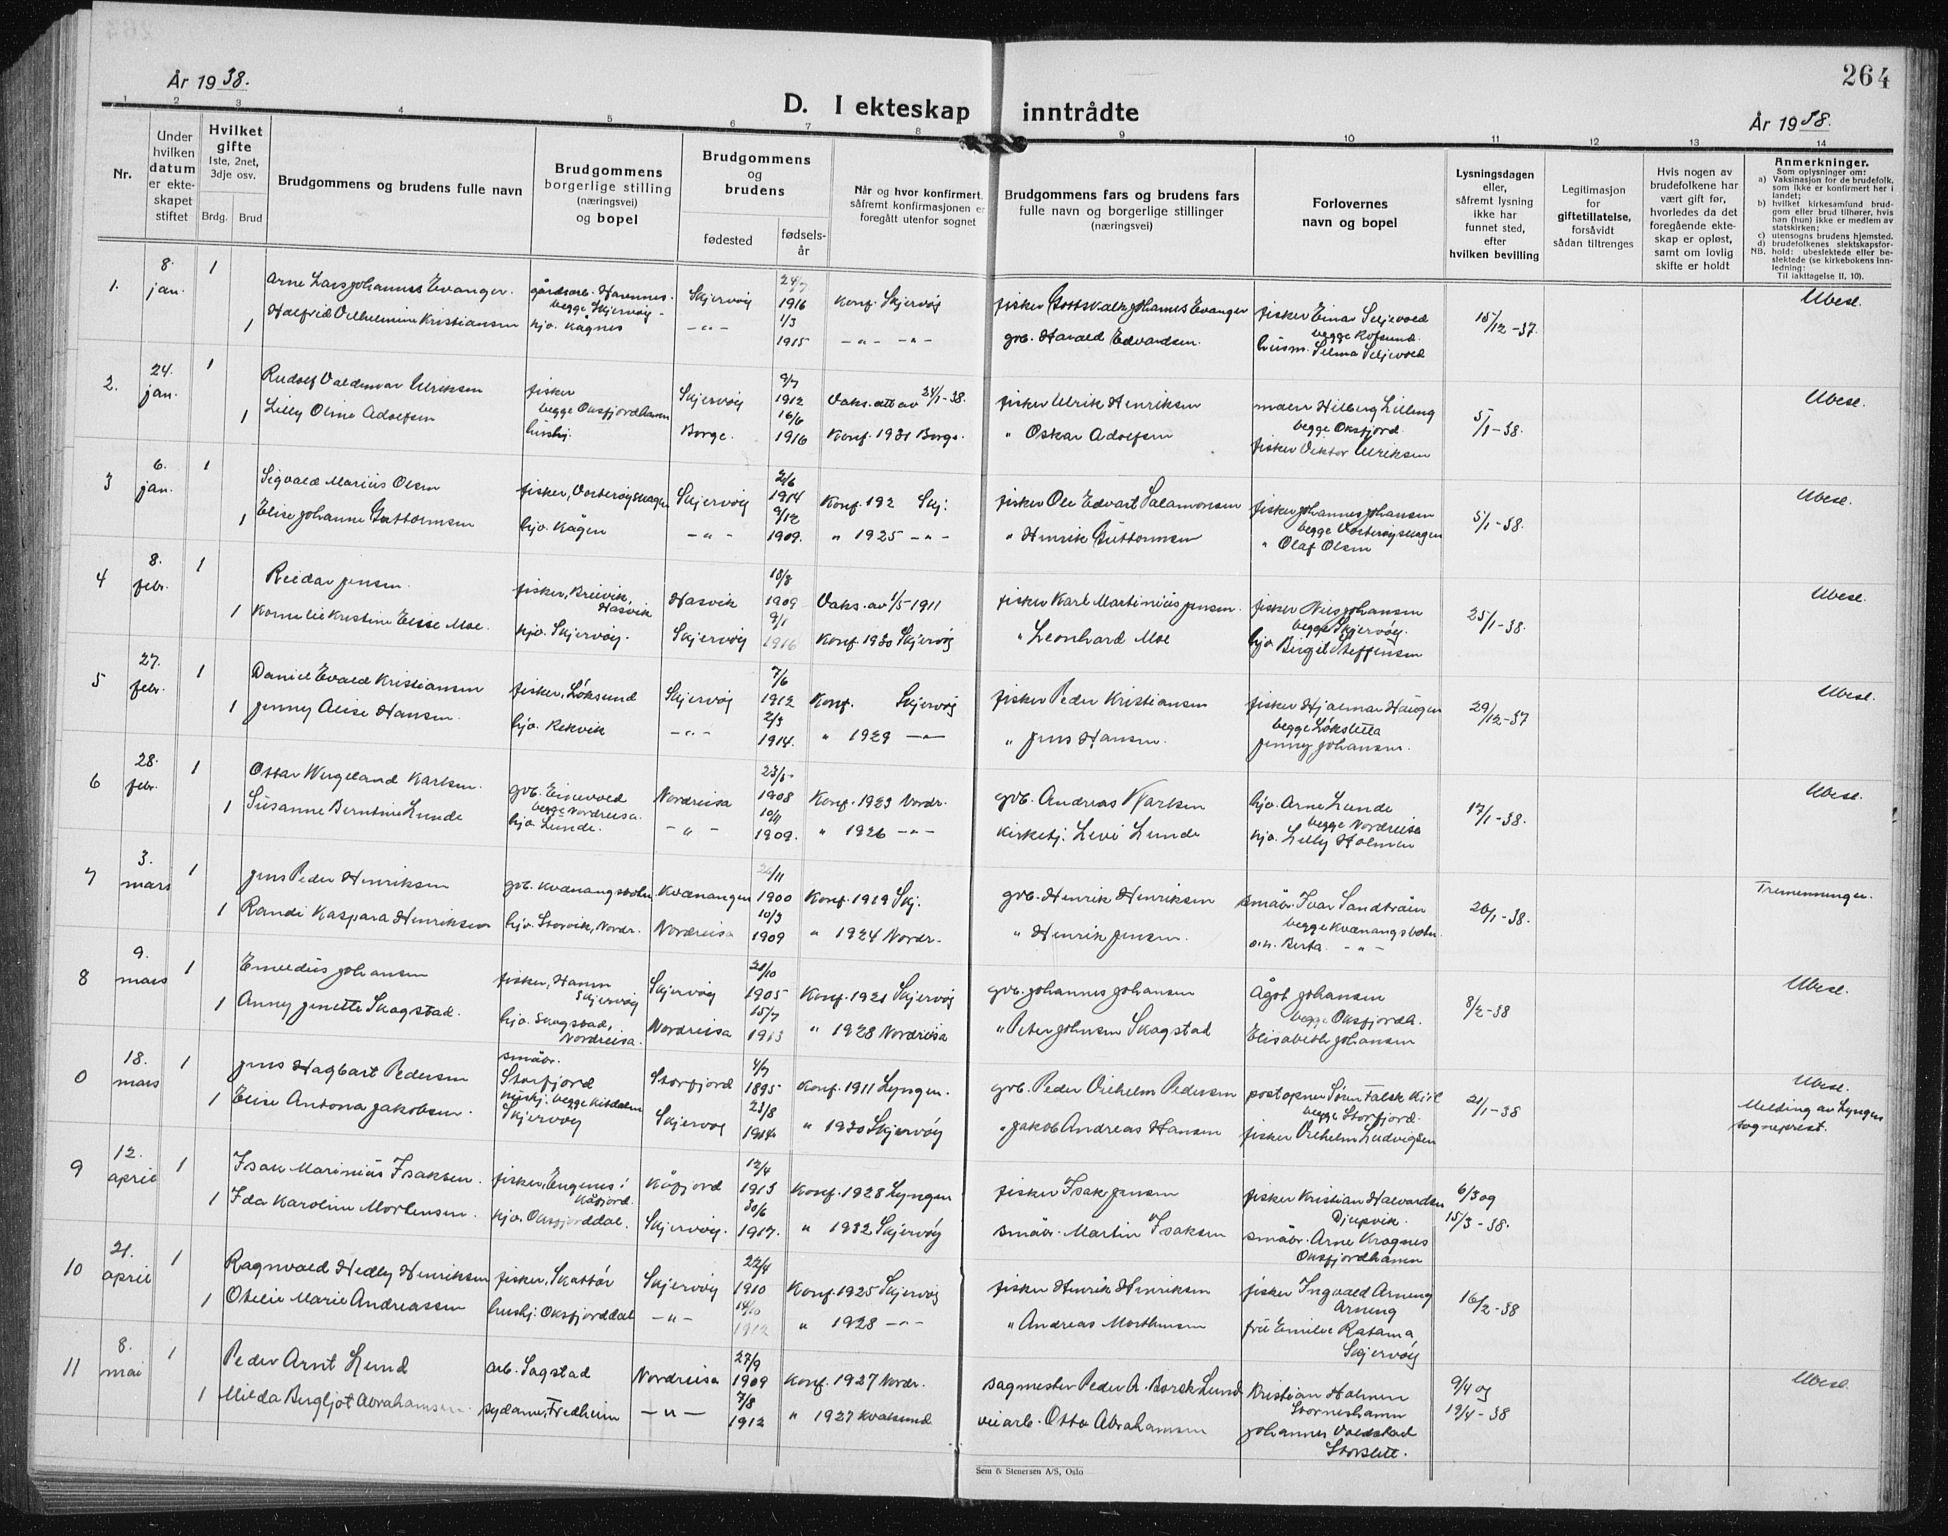 264
År 1938.
År 1938.
D. I ekteskap inntrådte
1 2 3 4 5 6 7 8 9 10 11 12 13 14
Nr.
Under hvilken datum er ekteskapet stiftet
Hvilket gifte
1ste, 2net, 3dje osv.
Brdg. Brud
Brudgommens og brudens fulle navn
Brudgommens borgerlige stilling (næringsvei) og bopel
Brudgommens og brudens
fødested
fødselsår
Når og hvor konfirmert, såfremt konfirmasjonen er foregått utenfor sognet
Brudgommens fars og brudens fars fulle navn og borgerlige stillinger (næringsvei)
Forlovernes navn og bopel
Lysningsdagen eller, såfremt lysning ikke har funnet sted, efter hvilken bevilling
Legitimasjon for giftetillatelse, forsåvidt sådan tiltrenges
Hvis nogen av brudefolkene har vært gift før, hvorledes da det foregående ekteskap er opløst, samt om lovlig skifte er holdt
Anmerkninger.
Som oplysninger om:
a) Vaksinasjon for de brudefolk, som ikke er konfirmert her i landet;
b) hvilket kirkesamfund brudgom eller brud tilhører, hvis han (hun) ikke er medlem av statskirken;
c) utensogns brudens hjemsted.
d) brudefolkenes slektskapsforhold: ubeslektede eller beslektede (se kirkebokens innledning:
NB. Til iakttagelse II, 10).
1. 8. jan. 1 Arne Lars Johannes Evanger. gårdsarb. Havnnes. Skjervøy 24/7 1916 Konf. Skjervøy fisker Johannes Evanger fisker Einar Seljevold 15/12-37. Ubesl.
begge Skjervøy. begge Rotsund.
1 Halfrid Vilhelmine Kristiansen hjv. Kågnes -"- 1/3 1915 -"- -"- gvb. Harald Edvardsen. husm. Selma Seljevold
2. 24. jan. 1 Rudolf Valdemar Ulriksen fisker Skjervøy 9/7 1912 Vaks. att av 24/1-38. fisker Ulrik Henriksen 5/1-38. Ubesl.
begge Oksfjordhamn begge Oksfjord.
1 Lilly Oline Adolfsen hushj. Borge. 16/6 1916 Konf. 1931 Borge. " Oskar Adolfsen fisker Viktor Ulriksen
3 6. jan. 1 Sigvald Marius Olsen fisker, Vorterøyskagen Skjervøy 2/6 1914 Konf. 192 Skj: fisker Ole Edvart Salamonsen fisker Johannes Johansen 5/1-38. Ubesl.
begge Vorterøyskagen
1 Elise Johanne Guttormsen hjv. Kågen -"- 9/12 1909. " 1925 -"- " Henrik Guttormsen " Olaf Olsen
4 8. febr. 1 Reidar Jensen. fisker, Breivik, Hasvik Hasvik 18/8 1909 Vaks. av 1/5 1911 fisker Karl Martinius Jensen. fisker Nils Johansen 25/1-38. Ubesl.
begge Skjervøy.
1 Kornelie Kristine Elise Moe. hjv. Skjervøy. Skjervøy 9/1 1916 Konf. 1930 Skjervøy " Leonhard Moe hjv. Birgit Steffensen
5 27. febr. 1 Daniel Evald Kristiansen fisker, Løksund Skjervøy 7/6 1912 Konf. Skjervøy fisker Peder Kristiansen fisker Hjalmar Haugen 29/12-37 Ubesl.
begge Løksletta
1 Jenny Alise Hansen. hjv. Rekvik -"- 2/3 1914. " 1929 -"- " Jens Hansen. Jenny Johansen.
6 28. febr. 1 Ottar Wergeland Karlsen. gvb. Einevold Nordreisa 1908 Konf. 1923 Nordr. gvb. Andreas Karlsen hjv. Arne Lunde 17/1-38. Ubesl.
begge Nordreisa. begge Nordreisa
1 Susanne Berntine Lunde hjv. Lunde. -"- 10/11 1909. " 1926 -"- kirketj: Levi Lunde hjv. Lilly Holmen
7 3. mars 1 Jens Peder Henriksen gvb. Kvænangsbotn Kvænangen 1900 Konf. 1919 Skj. gvb. Henrik Henriksen småbr. Ivar Sandtrøen 20/1-38. Tremenninger.
begge Kvænangsbotn.
1 Randi Kaspara Henriksen hjv. Storvik, Nordr. Nordreisa 10/3 1909 " 1924 Nordr. " Henrik Jensen. Berta -"-
8 9. mars 1 Emeldius Johansen fisker, Hamn Skjervøy Skjervøy 21/10 1905 Konf. 1921 Skjervøy gvb. Johannes Johansen Ågot Johansen 8/2-38 Ubesl.
begge Oksfjordh.
1 Anny Jenette Skogstad. hjv. Skogstad, Nordreisa. Nordreisa 15/7 1913 " 1928 Nordreisa " Peter Johnsen Skogstad Elisabeth Johansen
0 18. mars 1 Jens Hagbart Pedersen småbr. Storfjord Storfjord 4/7 1895 Konf. 1911 Lyngen. gvb. Peder Vilhelm Pedersen postopner Søren Falsk Kiil 21/1-38 Ubesl.
begge Storfjord. Melding av Lyngen sogneprest.
1 Elise Antona Jakobsen. Skjervøy Skjervøy 23/8 1914. " 1930 Skjervøy " Jakob Andreas Hansen fisker Vilhelm Ludvigsen
9 12. april 1 Isak Marinius Isaksen. fisker, Engenes i Kåfjord. Kåfjord 12/4 1913 Konf. 1928 Lyngen fisker Isak Jensen fisker Kristian Halvardsen Djupvik. 6/3 og 15/3-38.
1 Ida Karoline Mortensen. hjv. Oksfjorddal. Skjervøy. 30/6 1917. " 1932 Skjervøy småbr. Martin Isaksen småbr. Arne Kragnes Oksfjordhamn
10 21. april 1 Ragnvald Hedly Henriksen fisker, Skattør Skjervøy 22/4 1910 Konf. 1925 Skjervøy fisker Henrik Henriksen fisker Ingvald Arneng Arneng 16/2-38
1 Otelie Marie Andreassen hushj: Oksfjorddal -"- 14/10 1912 " 1928 -"- " Andreas Morthensen frk Emilie Ratama, Skjervøy
11 8. mai 1 Peder Arnt Lund arb. Sagstad Nordreisa 27/9 1909 Konf. 1927 Nordr. sagmester Peder A. Borch Lund Kristian Holmen Storneshamn 9/4 og 19/4-38 Ubesl.
1 Milda Bergljot Abrahamsen. sydame, Fredheim -"- 7/8 1912 " 1927 Kvalsund veiarb. Otto Abrahamsen Johannes Voldstad Storslett.
Sem & Stenersen A/S, Oslo